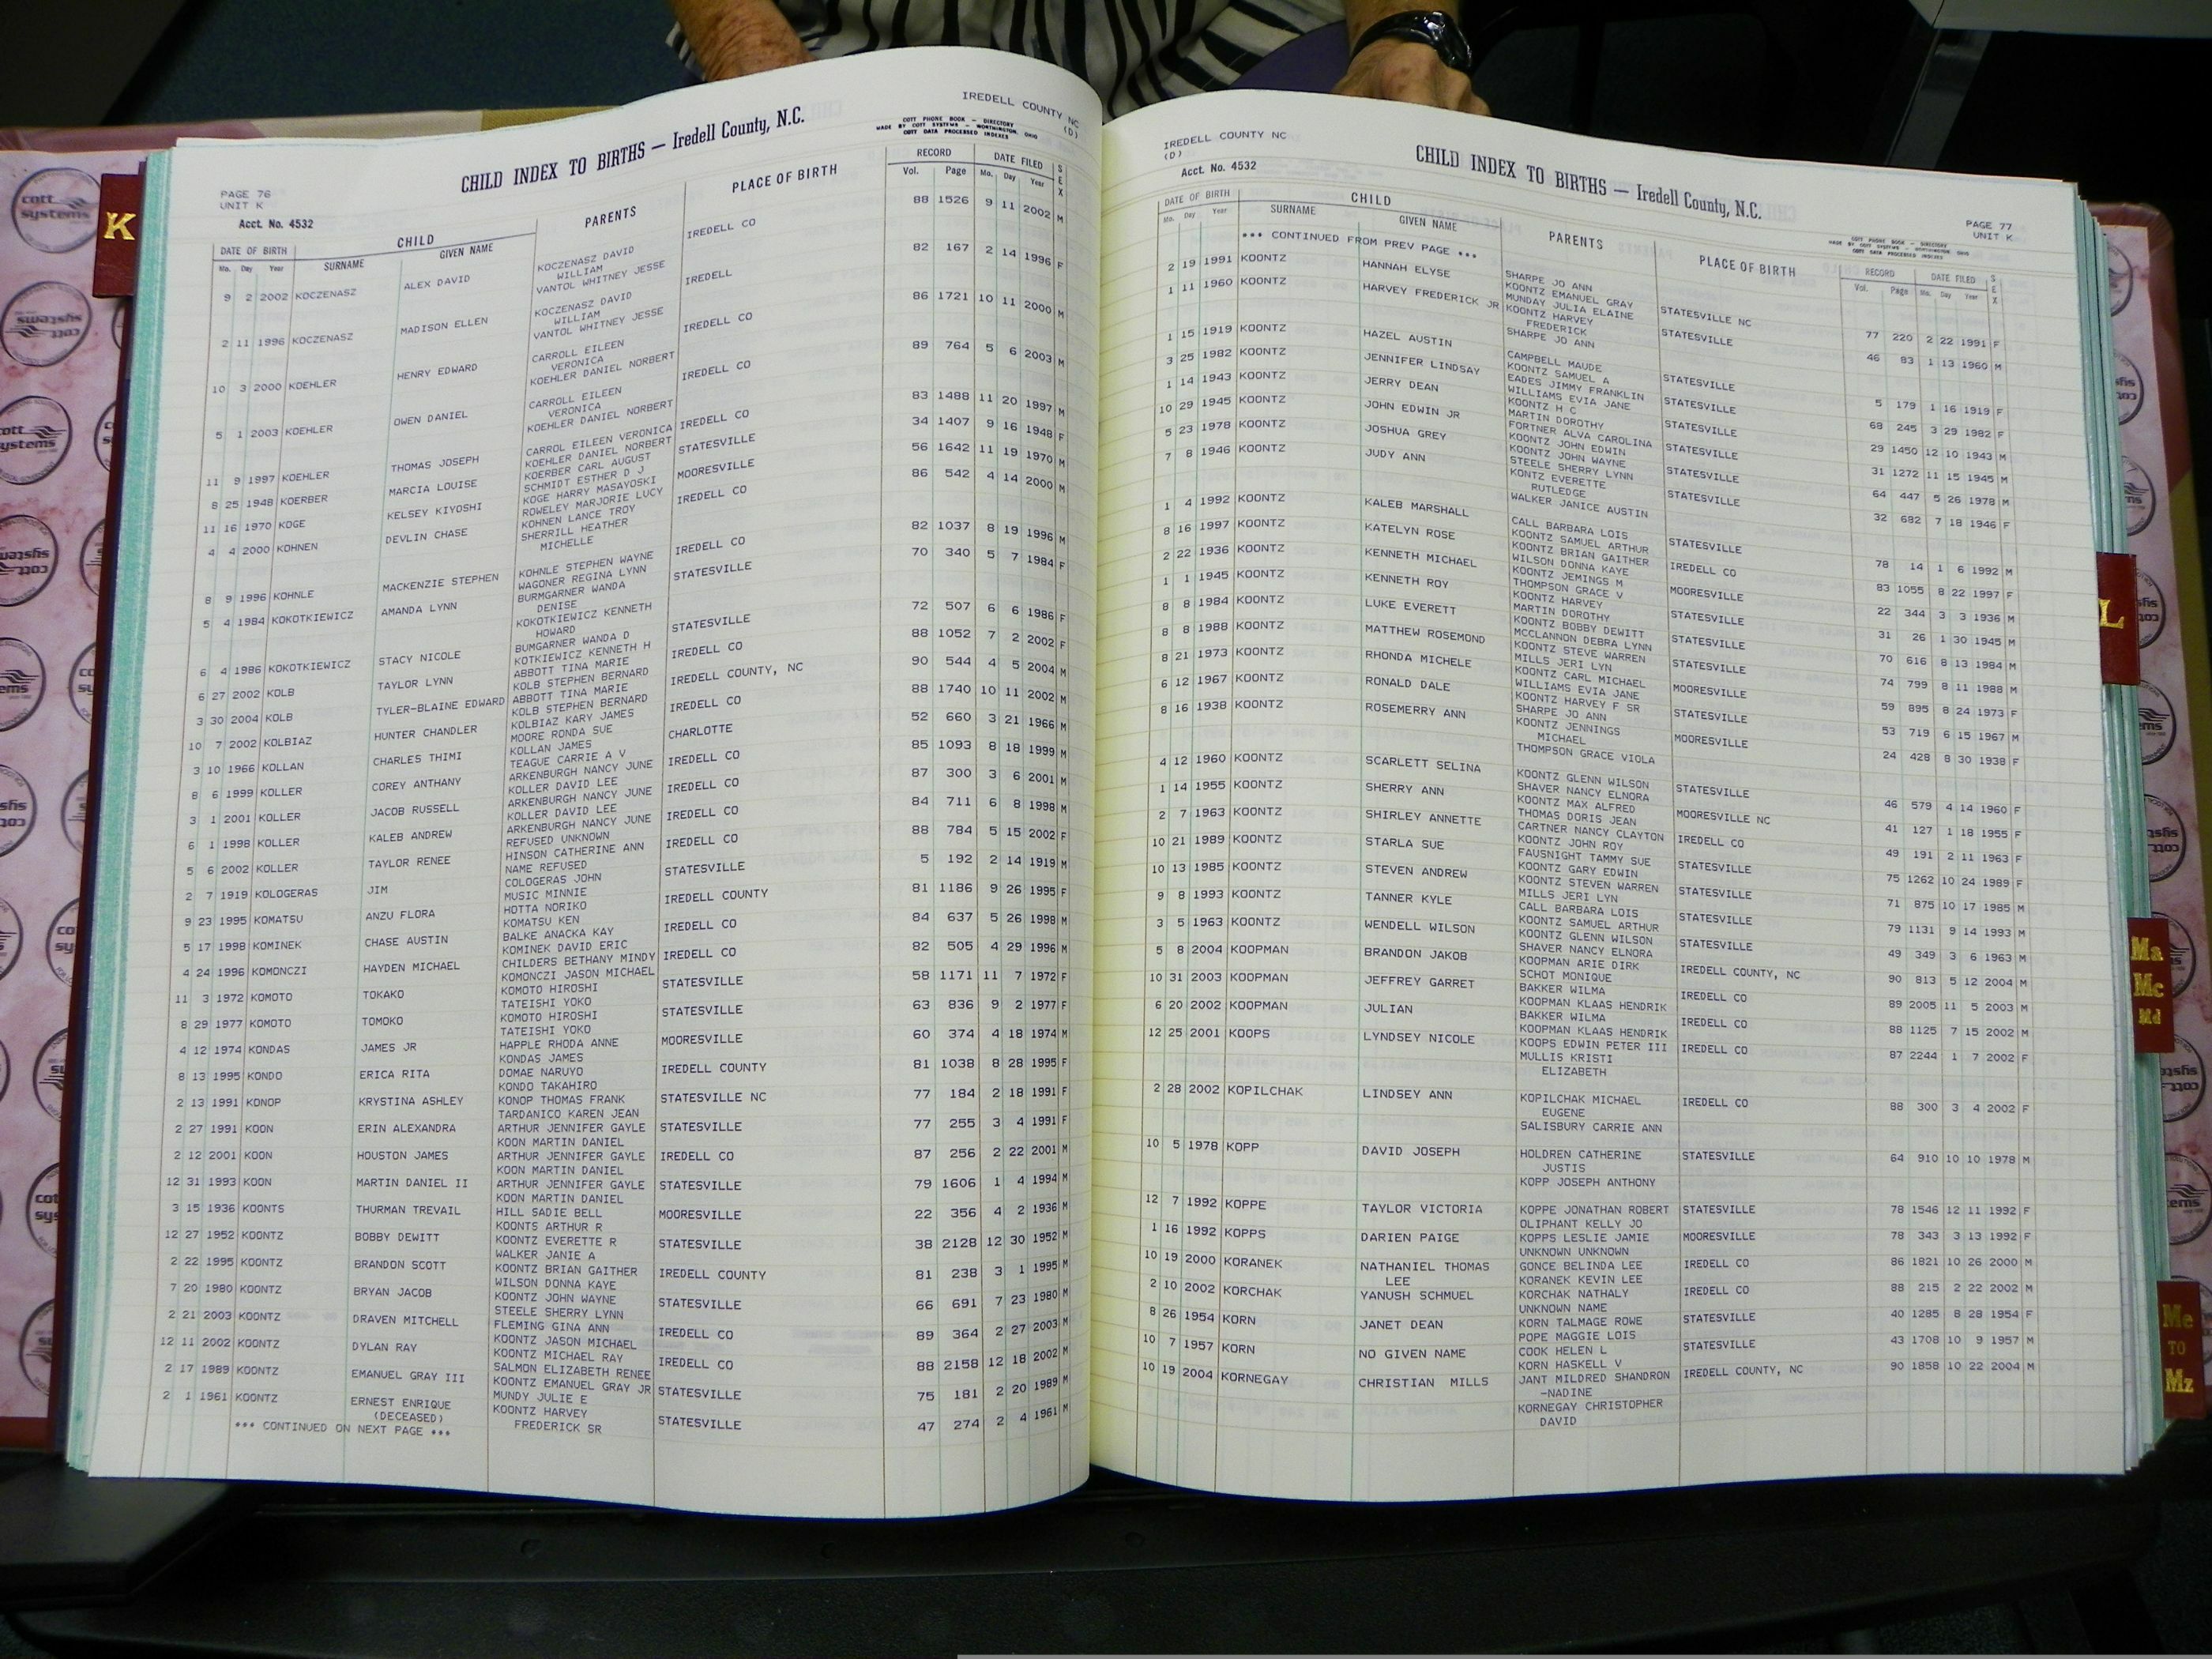 IREDELL COUNTY NC
(D)
COTT PHONE BOOK — DIRECTORY
MADE BY COTT SYSTEMS — WORTHINGTON, OHIO
COTT DATA PROCESSED INDEXES
CHILD INDEX TO BIRTHS — Iredell County, N.C.
PAGE 76
UNIT K
Acct. No. 4532
DATE OF BIRTH CHILD PARENTS PLACE OF BIRTH RECORD DATE FILED SEX
Mo. Day Year SURNAME GIVEN NAME Vol. Page Mo. Day Year
9 2 2002 KOCZENASZ ALEX DAVID KOCZENASZ DAVID IREDELL CO 88 1526 9 11 2002 M
WILLIAM
VANTOL WHITNEY JESSE
2 11 1996 KOCZENASZ MADISON ELLEN KOCZENASZ DAVID IREDELL 82 167 2 14 1996 F
WILLIAM
VANTOL WHITNEY JESSE
10 3 2000 KOEHLER HENRY EDWARD CARROLL EILEEN IREDELL CO 86 1721 10 11 2000 M
VERONICA
KOEHLER DANIEL NORBERT
5 1 2003 KOEHLER OWEN DANIEL CARROLL EILEEN IREDELL CO 89 764 5 6 2003 M
VERONICA
KOEHLER DANIEL NORBERT
11 9 1997 KOEHLER THOMAS JOSEPH CARROL EILEEN VERONICA IREDELL CO 83 1488 11 20 1997 M
KOEHLER DANIEL NORBERT
8 25 1948 KOERBER MARCIA LOUISE KOERBER CARL AUGUST STATESVILLE 34 1407 9 16 1948 F
SCHMIDT ESTHER D J
11 16 1970 KOGE KELSEY KIYOSHI KOGE HARRY MASAYOSKI MOORESVILLE 56 1642 11 19 1970 M
ROWELEY MARJORIE LUCY
4 4 2000 KOHNEN DEVLIN CHASE KOHNEN LANCE TROY IREDELL CO 86 542 4 14 2000 M
SHERRILL HEATHER
MICHELLE
8 9 1996 KOHNLE MACKENZIE STEPHEN KOHNLE STEPHEN WAYNE IREDELL CO 82 1037 8 19 1996 M
WAGONER REGINA LYNN
5 4 1984 KOKOTKIEWICZ AMANDA LYNN BURMGARNER WANDA STATESVILLE 70 340 5 7 1984 F
DENISE
KOKOTKIEWICZ KENNETH
HOWARD
6 4 1986 KOKOTKIEWICZ STACY NICOLE BUMGARNER WANDA D STATESVILLE 72 507 6 6 1986 F
KOTKIEWICZ KENNETH H
6 27 2002 KOLB TAYLOR LYNN ABBOTT TINA MARIE IREDELL CO 88 1052 7 2 2002 F
KOLB STEPHEN BERNARD
3 30 2004 KOLB TYLER-BLAINE EDWARD ABBOTT TINA MARIE IREDELL COUNTY, NC 90 544 4 5 2004 M
KOLB STEPHEN BERNARD
10 7 2002 KOLBIAZ HUNTER CHANDLER KOLBIAZ KARY JAMES IREDELL CO 88 1740 10 11 2002 M
MOORE RONDA SUE
3 10 1966 KOLLAN CHARLES THIMI KOLLAN JAMES CHARLOTTE 52 660 3 21 1966 M
TEAGUE CARRIE A V
8 6 1999 KOLLER COREY ANTHANY ARKENBURGH NANCY JUNE IREDELL CO 85 1093 8 18 1999 M
KOLLER DAVID LEE
3 1 2001 KOLLER JACOB RUSSELL ARKENBURGH NANCY JUNE IREDELL CO 87 300 3 6 2001 M
KOLLER DAVID LEE
6 1 1998 KOLLER KALEB ANDREW ARKENBURGH NANCY JUNE IREDELL CO 84 711 6 8 1998 M
REFUSED UNKNOWN
5 6 2002 KOLLER TAYLOR RENEE HINSON CATHERINE ANN IREDELL CO 88 784 5 15 2002 F
NAME REFUSED
2 7 1919 KOLOGERAS JIM COLOGERAS JOHN STATESVILLE 5 192 2 14 1919 M
MUSIC MINNIE
9 23 1995 KOMATSU ANZU FLORA HOTTA NORIKO IREDELL COUNTY 81 1186 9 26 1995 F
KOMATSU KEN
5 17 1998 KOMINEK CHASE AUSTIN BALKE ANACKA KAY IREDELL CO 84 637 5 26 1998 M
KOMINEK DAVID ERIC
4 24 1996 KOMONCZI HAYDEN MICHAEL CHILDERS BETHANY MINDY IREDELL CO 82 505 4 29 1996 M
KOMONCZI JASON MICHAEL
11 3 1972 KOMOTO TOKAKO KOMOTO HIROSHI STATESVILLE 58 1171 11 7 1972 F
TATEISHI YOKO
8 29 1977 KOMOTO TOMOKO KOMOTO HIROSHI STATESVILLE 63 836 9 2 1977 F
TATEISHI YOKO
4 12 1974 KONDAS JAMES JR HAPPLE RHODA ANNE MOORESVILLE 60 374 4 18 1974 M
KONDAS JAMES
8 13 1995 KONDO ERICA RITA DOMAE NARUYO IREDELL COUNTY 81 1038 8 28 1995 F
KONDO TAKAHIRO
2 13 1991 KONOP KRYSTINA ASHLEY KONOP THOMAS FRANK STATESVILLE NC 77 184 2 18 1991 F
TARDANICO KAREN JEAN
2 27 1991 KOON ERIN ALEXANDRA ARTHUR JENNIFER GAYLE STATESVILLE 77 255 3 4 1991 F
KOON MARTIN DANIEL
2 12 2001 KOON HOUSTON JAMES ARTHUR JENNIFER GAYLE IREDELL CO 87 256 2 22 2001 M
KOON MARTIN DANIEL
12 31 1993 KOON MARTIN DANIEL II ARTHUR JENNIFER GAYLE STATESVILLE 79 1606 1 4 1994 M
KOON MARTIN DANIEL
3 15 1936 KOONTS THURMAN TREVAIL HILL SADIE BELL MOORESVILLE 22 356 4 2 1936 M
KOONTS ARTHUR R
12 27 1952 KOONTZ BOBBY DEWITT KOONTZ EVERETTE R STATESVILLE 38 2128 12 30 1952 M
WALKER JANIE A
2 22 1995 KOONTZ BRANDON SCOTT KOONTZ BRIAN GAITHER IREDELL COUNTY 81 238 3 1 1995 M
WILSON DONNA KAYE
7 20 1980 KOONTZ BRYAN JACOB KOONTZ JOHN WAYNE STATESVILLE 66 691 7 23 1980 M
STEELE SHERRY LYNN
2 21 2003 KOONTZ DRAVEN MITCHELL FLEMING GINA ANN IREDELL CO 89 364 2 27 2003 M
KOONTZ JASON MICHAEL
12 11 2002 KOONTZ DYLAN RAY KOONTZ MICHAEL RAY IREDELL CO 88 2158 12 18 2002 M
SALMON ELIZABETH RENEE
2 17 1989 KOONTZ EMANUEL GRAY III KOONTZ EMANUEL GRAY JR STATESVILLE 75 181 2 20 1989 M
MUNDY JULIE E
2 1 1961 KOONTZ ERNEST ENRIQUE KOONTZ HARVEY STATESVILLE 47 274 2 4 1961 M
(DECEASED) FREDERICK SR
*** CONTINUED ON NEXT PAGE ***
IREDELL COUNTY NC
(D)
Acct. No. 4532
CHILD INDEX TO BIRTHS — Iredell County, N.C.
PAGE 77
UNIT K
COTT PHONE BOOK — DIRECTORY
MADE BY COTT SYSTEMS — WORTHINGTON, OHIO
COTT DATA PROCESSED INDEXES
DATE OF BIRTH CHILD PARENTS PLACE OF BIRTH RECORD DATE FILED SEX
Mo. Day Year SURNAME GIVEN NAME Vol. Page Mo. Day Year
*** CONTINUED FROM PREV PAGE ***
SHARPE JO ANN
2 19 1991 KOONTZ HANNAH ELYSE KOONTZ EMANUEL GRAY STATESVILLE NC 77 220 2 22 1991 F
MUNDAY JULIA ELAINE
1 11 1960 KOONTZ HARVEY FREDERICK JR KOONTZ HARVEY STATESVILLE 46 83 1 13 1960 M
FREDERICK
SHARPE JO ANN
1 15 1919 KOONTZ HAZEL AUSTIN CAMPBELL MAUDE STATESVILLE 5 179 1 16 1919 F
KOONTZ SAMUEL A
3 25 1982 KOONTZ JENNIFER LINDSAY EADES JIMMY FRANKLIN STATESVILLE 68 245 3 29 1982 F
WILLIAMS EVIA JANE
1 14 1943 KOONTZ JERRY DEAN KOONTZ H C STATESVILLE 29 1450 12 10 1943 M
MARTIN DOROTHY
10 29 1945 KOONTZ JOHN EDWIN JR FORTNER ALVA CAROLINA STATESVILLE 31 1272 11 15 1945 M
KOONTZ JOHN EDWIN
5 23 1978 KOONTZ JOSHUA GREY KOONTZ JOHN WAYNE STATESVILLE 64 447 5 26 1978 M
STEELE SHERRY LYNN
7 8 1946 KOONTZ JUDY ANN KONTZ EVERETTE 32 682 7 18 1946 F
RUTLEDGE
WALKER JANICE AUSTIN
1 4 1992 KOONTZ KALEB MARSHALL CALL BARBARA LOIS STATESVILLE 78 14 1 6 1992 M
KOONTZ SAMUEL ARTHUR
8 16 1997 KOONTZ KATELYN ROSE KOONTZ BRIAN GAITHER IREDELL CO 83 1055 8 22 1997 F
WILSON DONNA KAYE
2 22 1936 KOONTZ KENNETH MICHAEL KOONTZ JEMINGS M MOORESVILLE 22 344 3 3 1936 M
THOMPSON GRACE V
1 1 1945 KOONTZ KENNETH ROY KOONTZ HARVEY STATESVILLE 31 26 1 30 1945 M
MARTIN DOROTHY
8 8 1984 KOONTZ LUKE EVERETT KOONTZ BOBBY DEWITT STATESVILLE 70 616 8 13 1984 M
MCCLANNON DEBRA LYNN
8 8 1988 KOONTZ MATTHEW ROSEMOND KOONTZ STEVE WARREN STATESVILLE 74 799 8 11 1988 M
MILLS JERI LYN
8 21 1973 KOONTZ RHONDA MICHELE KOONTZ CARL MICHAEL MOORESVILLE 59 895 8 24 1973 F
WILLIAMS EVIA JANE
6 12 1967 KOONTZ RONALD DALE KOONTZ HARVEY F SR STATESVILLE 53 719 6 15 1967 M
SHARPE JO ANN
8 16 1938 KOONTZ ROSEMERRY ANN KOONTZ JENNINGS MOORESVILLE 24 428 8 30 1938 F
MICHAEL
THOMPSON GRACE VIOLA
4 12 1960 KOONTZ SCARLETT SELINA KOONTZ GLENN WILSON STATESVILLE 46 579 4 14 1960 F
SHAVER NANCY ELNORA
1 14 1955 KOONTZ SHERRY ANN KOONTZ MAX ALFRED MOORESVILLE NC 41 127 1 18 1955 F
THOMAS DORIS JEAN
2 7 1963 KOONTZ SHIRLEY ANNETTE CARTNER NANCY CLAYTON IREDELL CO 49 191 2 11 1963 F
KOONTZ JOHN ROY
10 21 1989 KOONTZ STARLA SUE FAUSNIGHT TAMMY SUE STATESVILLE 75 1262 10 24 1989 F
KOONTZ GARY EDWIN
10 13 1985 KOONTZ STEVEN ANDREW KOONTZ STEVEN WARREN STATESVILLE 71 875 10 17 1985 M
MILLS JERI LYN
9 8 1993 KOONTZ TANNER KYLE CALL BARBARA LOIS STATESVILLE 79 1131 9 14 1993 M
KOONTZ SAMUEL ARTHUR
3 5 1963 KOONTZ WENDELL WILSON KOONTZ GLENN WILSON STATESVILLE 49 349 3 6 1963 M
SHAVER NANCY ELNORA
5 8 2004 KOOPMAN BRANDON JAKOB KOOPMAN ARIE DIRK IREDELL COUNTY, NC 90 813 5 12 2004 M
SCHOT MONIQUE
10 31 2003 KOOPMAN JEFFREY GARRET BAKKER WILMA IREDELL CO 89 2005 11 5 2003 M
KOOPMAN KLAAS HENDRIK
6 20 2002 KOOPMAN JULIAN BAKKER WILMA IREDELL CO 88 1125 7 15 2002 M
KOOPMAN KLAAS HENDRIK
12 25 2001 KOOPS LYNDSEY NICOLE KOOPS EDWIN PETER III IREDELL CO 87 2244 1 7 2002 F
MULLIS KRISTI
ELIZABETH
2 28 2002 KOPILCHAK LINDSEY ANN KOPILCHAK MICHAEL IREDELL CO 88 300 3 4 2002 F
EUGENE
SALISBURY CARRIE ANN
10 5 1978 KOPP DAVID JOSEPH HOLDREN CATHERINE STATESVILLE 64 910 10 10 1978 M
JUSTIS
KOPP JOSEPH ANTHONY
12 7 1992 KOPPE TAYLOR VICTORIA KOPPE JONATHAN ROBERT STATESVILLE 78 1546 12 11 1992 F
OLIPHANT KELLY JO
1 16 1992 KOPPS DARIEN PAIGE KOPPS LESLIE JAMIE MOORESVILLE 78 343 3 13 1992 F
UNKNOWN UNKNOWN
10 19 2000 KORANEK NATHANIEL THOMAS GONCE BELINDA LEE IREDELL CO 86 1821 10 26 2000 M
LEE KORANEK KEVIN LEE
2 10 2002 KORCHAK YANUSH SCHMUEL KORCHAK NATHALY IREDELL CO 88 215 2 22 2002 M
UNKNOWN NAME
8 26 1954 KORN JANET DEAN KORN TALMAGE ROWE STATESVILLE 40 1285 8 28 1954 F
POPE MAGGIE LOIS
10 7 1957 KORN NO GIVEN NAME COOK HELEN L STATESVILLE 43 1708 10 9 1957 M
KORN HASKELL V
10 19 2004 KORNEGAY CHRISTIAN MILLS JANT MILDRED SHANDRON IREDELL COUNTY, NC 90 1858 10 22 2004 M
-NADINE
KORNEGAY CHRISTOPHER
DAVID
K
L
Ma
Mc
Md
Me
TO
Mz
cott
systems